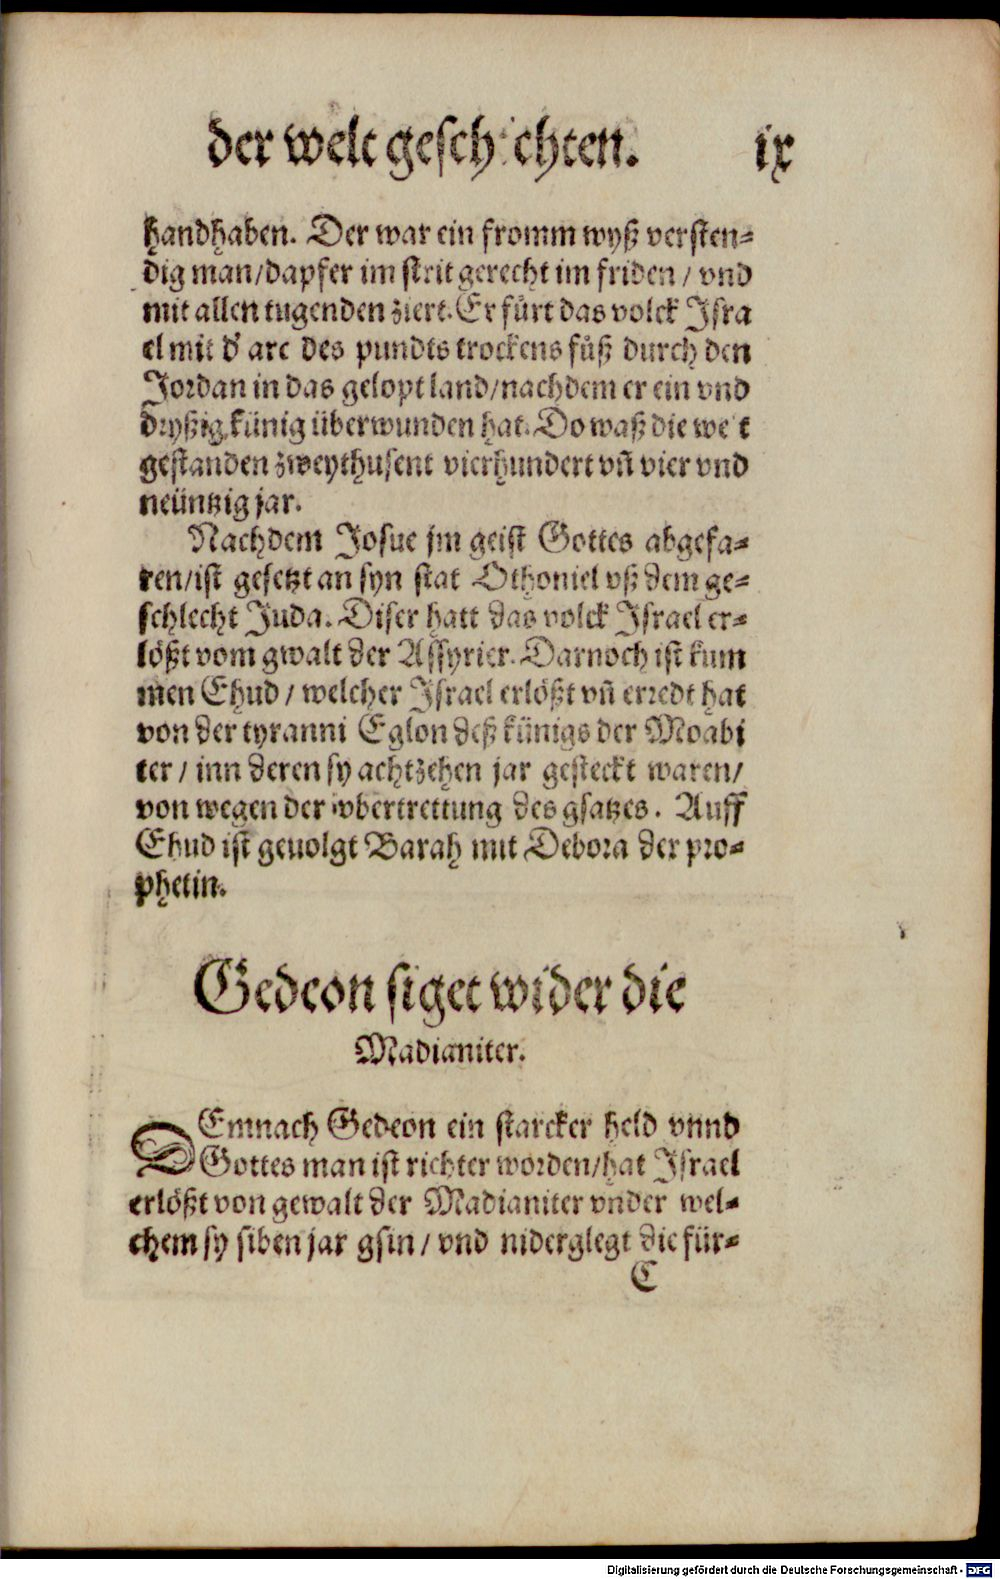 der welt geschichten. ix
handhaben. Der war ein fromm wyß versten-
dig man/dapfer im strit gerecht im friden / vnd
mit allen tugenden ziert. Er fürt das volck Isra
el mit d' arc des pundts trockens fůß durch den
Jordan in das gelopt land/nachdem er ein vnd
dryßig künig überwunden hat. Do waß die welt
gestanden zweythusent vierhundert vñ vier vnd
neüntzig jar.
Nachdem Josue jm geist Gottes abgefa-
ren/ist gesetzt an syn stat Othoniel vß dem ge-
schlecht Juda. Diser hatt das volck Israel er-
lößt vom gwalt der Assyrier. Darnoch ist kum
men Ehud / welcher Israel erlößt vñ erredt hat
von der tyranni Eglon deß künigs der Moabi
ter / inn deren sy achtzehen jar gesteckt waren/
von wegen der vbertrettung des gsatzes. Auff
Ehud ist geuolgt Barah mit Debora der pro-
phetin.
Gedeon siget wider die
Madianiter.
DEmnach Gedeon ein starcker held vnnd
Gottes man ist richter worden/hat Israel
erlößt von gewalt der Madianiter vnder wel-
chem sy siben jar gsin / vnd niderglegt die für-
C
Digitalisierung gefördert durch die Deutsche Forschungsgemeinschaft - DFG